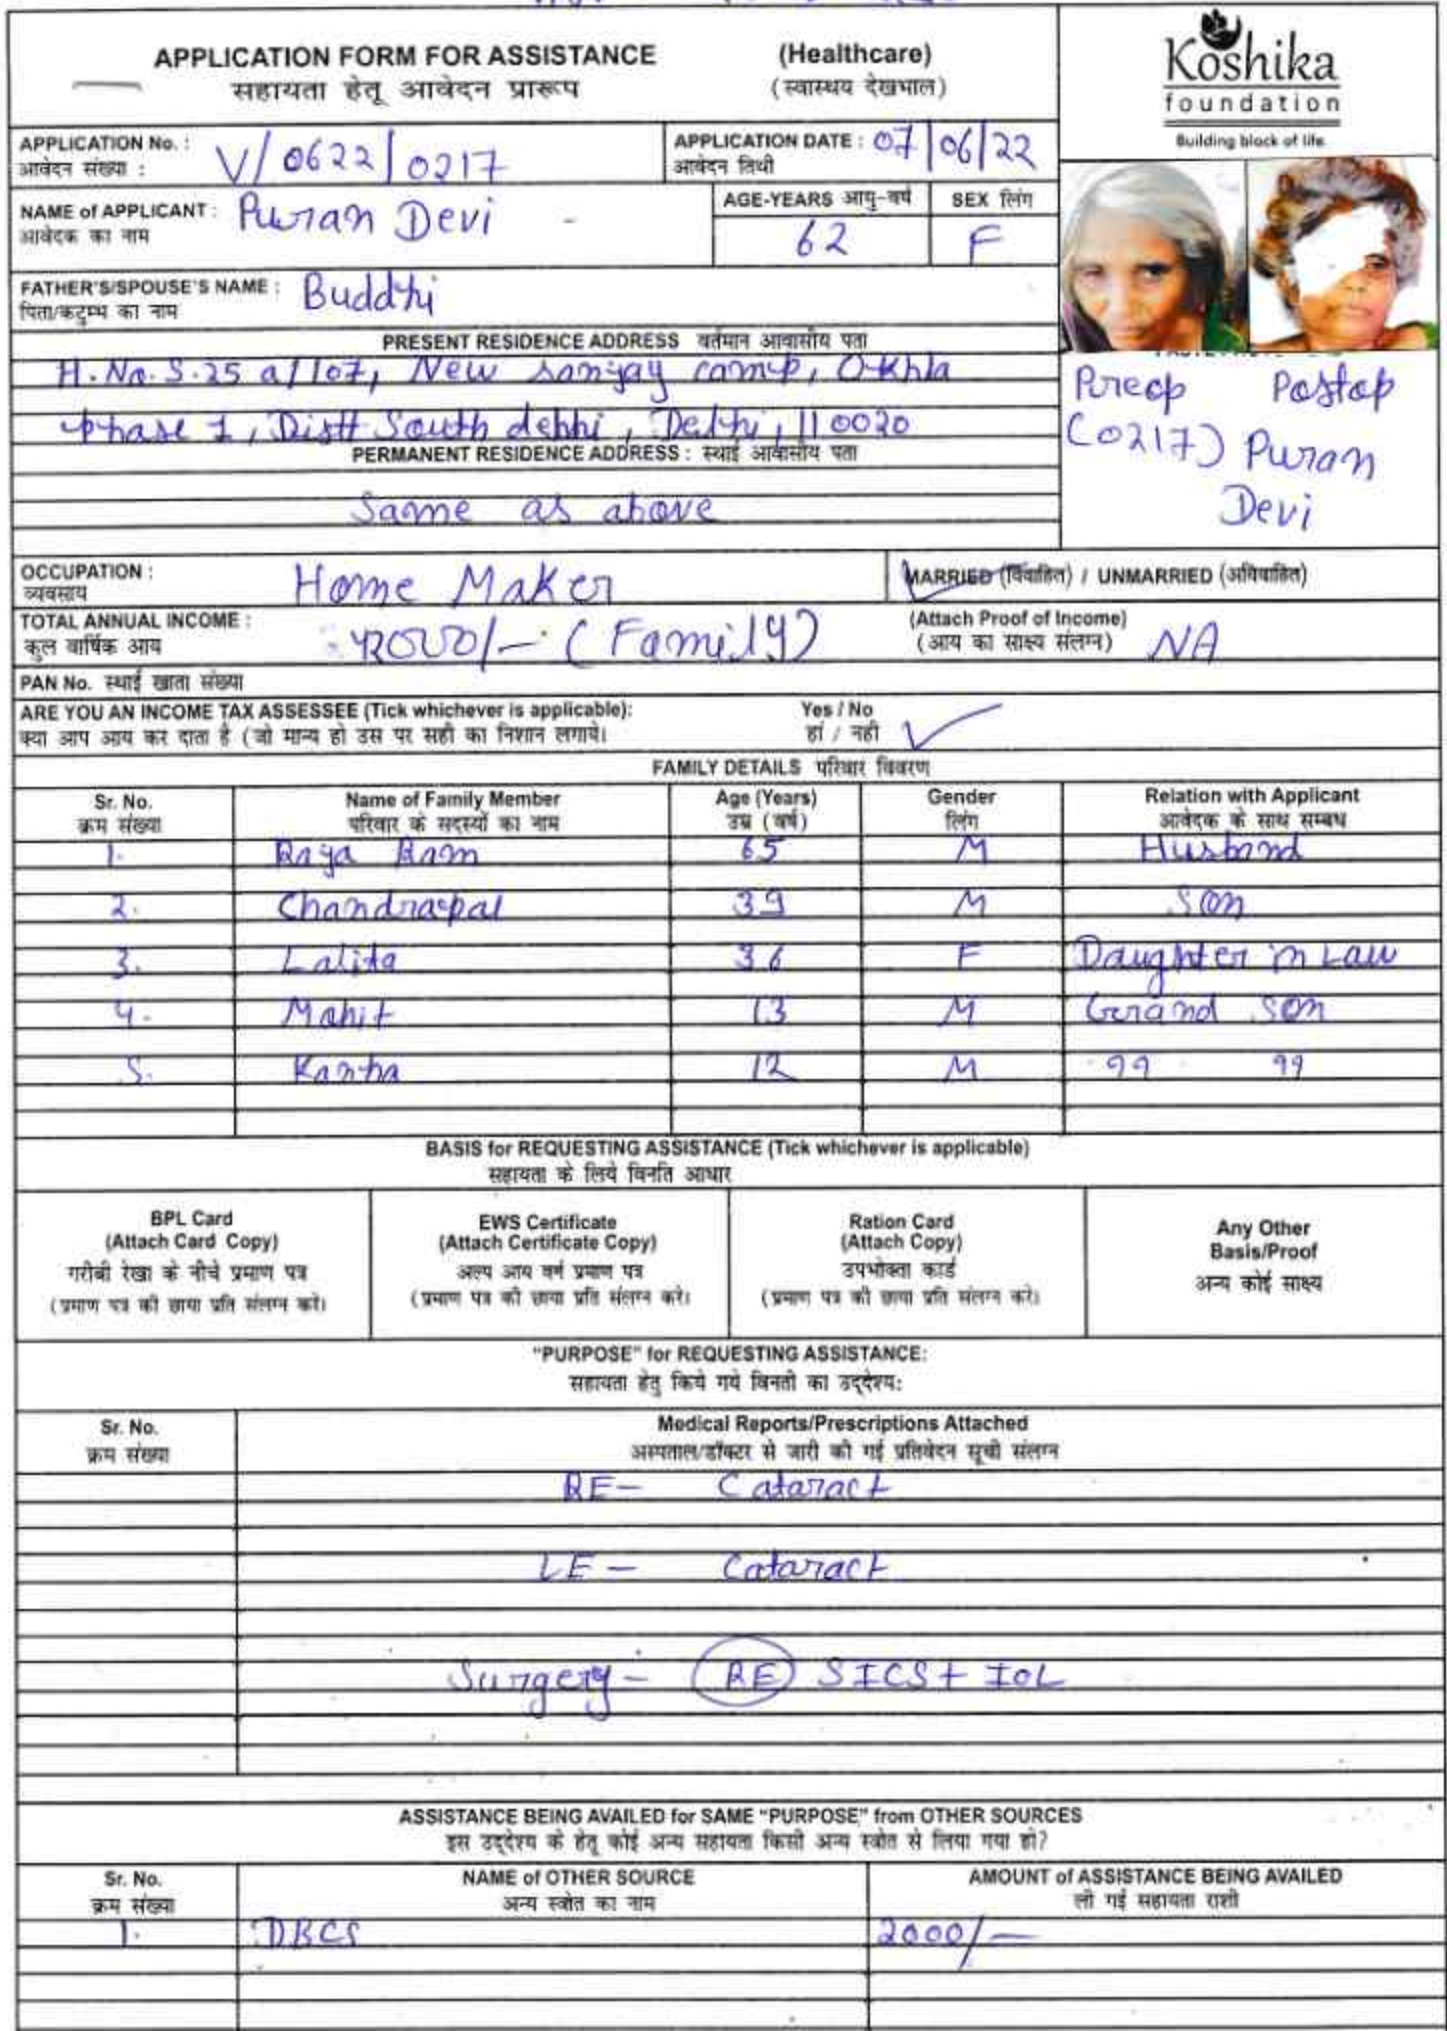 APPLICATION FORM FOR ASSISTANCE (Healthcare)
सहायता हेतू आवेदन प्रारूप (स्वास्थय देखभाल)
Koshika
foundation
Building block of life
APPLICATION No. : V/0622/0217
आवेदन संख्या :
APPLICATION DATE : 07/06/22
आवेदन तिथी
NAME of APPLICANT : Puran Devi
आवेदक का नाम
AGE-YEARS आयु-वर्ष
62
SEX लिंग
F
FATHER'S/SPOUSE'S NAME : Buddhi
पिता/कटुम्भ का नाम
PRESENT RESIDENCE ADDRESS वर्तमान आवासीय पता
H.No.S.25 a/107, New sanjay camp, Okhla
phase 1, Distt South dehhi, Delhi, 110020
PERMANENT RESIDENCE ADDRESS : स्थाई आवासीय पता
Same as above
Preop Postop
(0217) Puran
Devi
OCCUPATION : Home Maker
व्यवसाय
MARRIED (विवाहित) / UNMARRIED (अविवाहित)
TOTAL ANNUAL INCOME : (Family)
कुल वार्षिक आय
(Attach Proof of Income) NA
(आय का साक्ष्य संलग्न)
PAN No. स्थाई खाता संख्या
ARE YOU AN INCOME TAX ASSESSEE (Tick whichever is applicable): Yes / No
क्या आप आय कर दाता है (जो मान्य हो उस पर सही का निशान लगाये। हां / नही
FAMILY DETAILS परिवार विवरण
Sr. No. Name of Family Member Age (Years) Gender Relation with Applicant
क्रम संख्या परिवार के सदस्यों का नाम उम्र (वर्ष) लिंग आवेदक के साथ सम्बध
1. Raja Ram 65 M Husband
2. Chandrapal 39 M Son
3. Lalita 36 F Daughter in Law
4. Mohit 13 M Grand Son
5. Kanha 12 M " "
BASIS for REQUESTING ASSISTANCE (Tick whichever is applicable)
सहायता के लिये विनति आधार
BPL Card
(Attach Card Copy)
गरीबी रेखा के नीचे प्रमाण पत्र
(प्रमाण पत्र की छाया प्रति संलग्न करे)
EWS Certificate
(Attach Certificate Copy)
अल्प आय वर्ग प्रमाण पत्र
(प्रमाण पत्र की छाया प्रति संलग्न करे)
Ration Card
(Attach Copy)
उपभोक्ता कार्ड
(प्रमाण पत्र की छाया प्रति संलग्न करे)
Any Other
Basis/Proof
अन्य कोई साक्ष्य
"PURPOSE" for REQUESTING ASSISTANCE:
सहायता हेतु किये गये विनती का उद्देश्य:
Sr. No. Medical Reports/Prescriptions Attached
क्रम संख्या अस्पताल/डॉक्टर से जारी की गई प्रतिवेदन सूची संलग्न
RE- Cataract
LE- Cataract
Surgery- RE SICS + IOL
ASSISTANCE BEING AVAILED for SAME "PURPOSE" from OTHER SOURCES
इस उद्देश्य के हेतू कोई अन्य सहायता किसी अन्य स्त्रोत से लिया गया हो?
Sr. No. NAME of OTHER SOURCE AMOUNT of ASSISTANCE BEING AVAILED
क्रम संख्या अन्य स्त्रोत का नाम ली गई सहायता राशी
1. DBCS 2000/-